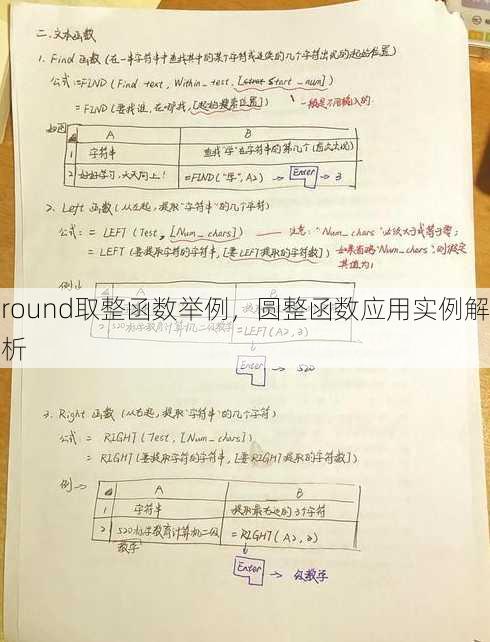 二、文本函数
1. Find 函数(在一串字符串中查找其中的某个字符或连续的几个字符出现的起始位置)
公式:=FIND(Find_text, Within_test, [Start_num])
=FIND(要找谁,在哪找,[起始搜索位置]) 一般是不用输入的.
如图
A B
1 字符串 查找"学"在字符串的第几个(首次出现)
2 好好学习,天天向上! =FIND("学",A2) → Enter → 3
2. Left 函数(从左起,提取"字符串"的几个字符)
公式: = LEFT(Test, [Num_chars]) 注意:"Num_chars"必须大于或等于零;
= LEFT(要提取字符的字符串,[要LEFT提取的字符数]) 如果省略"Num_chars",则假定
其值为1
round取整函数举例,圆整函数应用实例解
析
2 =LEFT(A2,3)
Enter → 520
3. Right 函数(从右起,提取"字符串"的几个字符)
公式: = RIGHT(Test, [Num_chars])
= RIGHT(要提取字符的字符串,[要RIGHT提取的字符数])
例→
A B
1 字符串 提取最右边的3个字符
2 =RIGHT(A2,3)
教学
Enter →